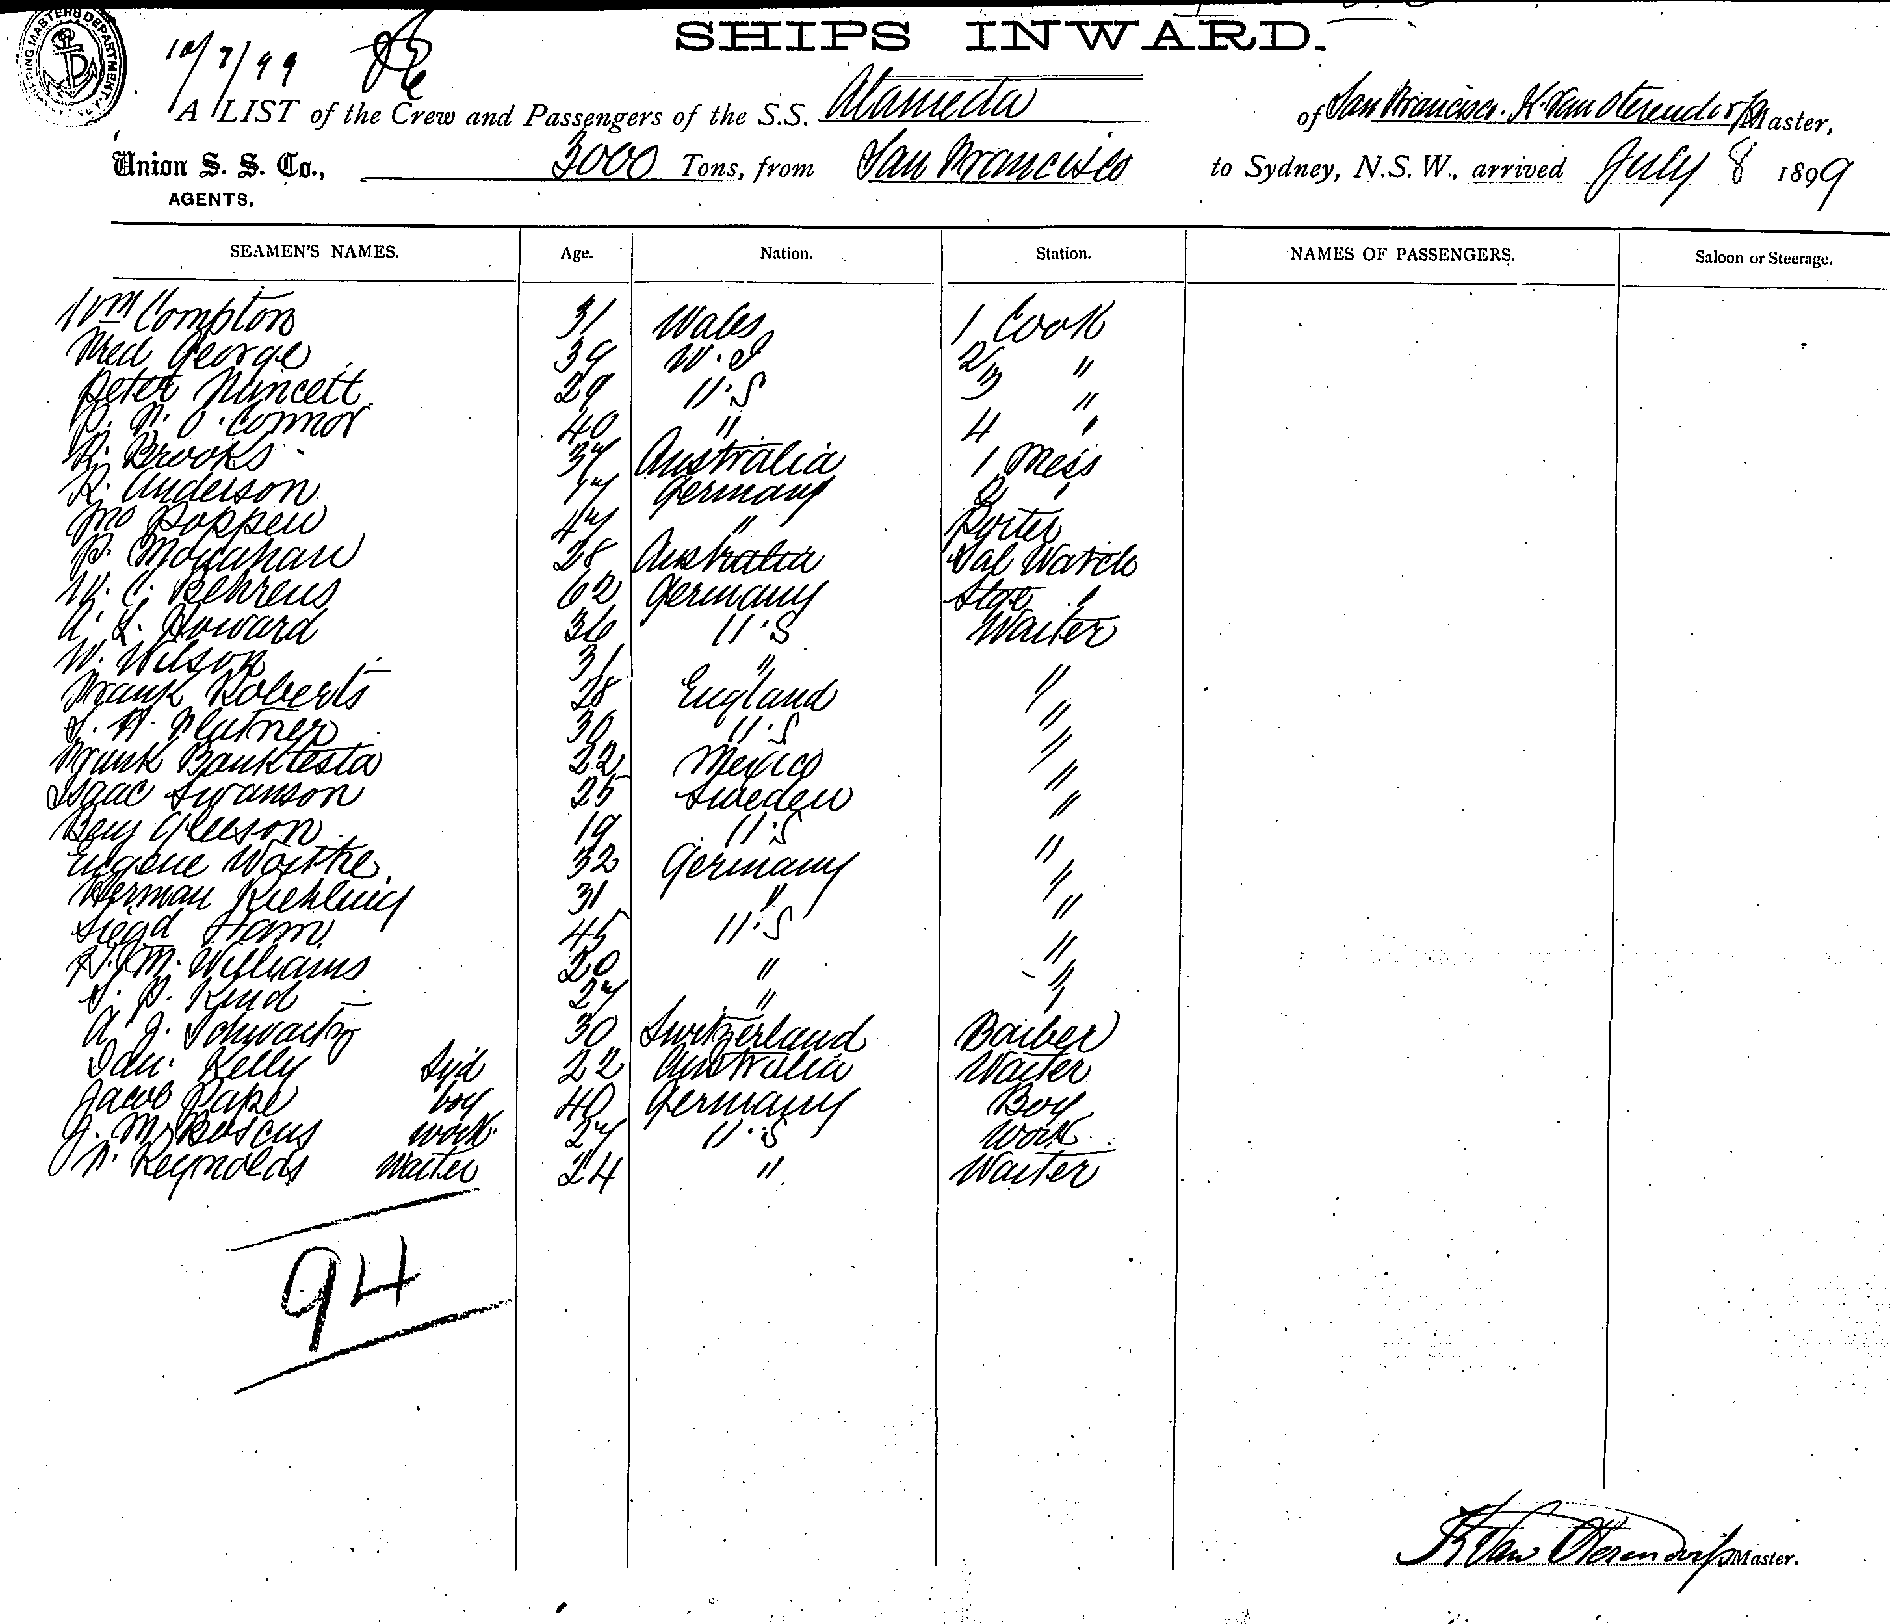 SHIPS INWARD.
10/7/99
A LIST of the Crew and Passengers of the S.S. Alameda of San Francisco. H. Van Oterendorp Master,
Union S. S. Co., 3000 Tons, from San Francisco to Sydney, N.S.W., arrived July 8 1899
AGENTS.
SEAMEN'S NAMES. Age. Nation. Station. NAMES OF PASSENGERS. Saloon or Steerage.
Wm Compton 31 Wales 1 Cook
Fred George 39 W. I 2 "
Peter Funcett 29 U.S 3 "
P. F. O'Connor 40 " 4 "
R. Brooks 37 Australia 1 Mess
R. Anderson 17 Germany 2 "
Jno Poppen 47 " Porter
P. Monahan 28 Australia Sal Watch
W. C. Behrens 62 Germany Stge "
A. L. Howard 36 U.S Waiter
W. Wilson 31 " "
Frank Roberts 28 England "
30 U.S "
Frank Banktesta 22 Mexico "
Isaac Swanson 25 Sweden "
Benj Gleeson 19 U.S "
Eugene Woithe 32 Germany "
Herman Kiehling 31 " "
Siegd Ham 45 U.S "
M. Williams 20 " "
S. P. Kend 27 " "
A. J. Schwartz 30 Switzerland Barber
Dan. Kelly Syd 22 Australia Waiter
Jacob Pape boy 40 Germany Boy
work 27 U.S work
F. Reynolds Waiter 24 " Waiter
94
Master.